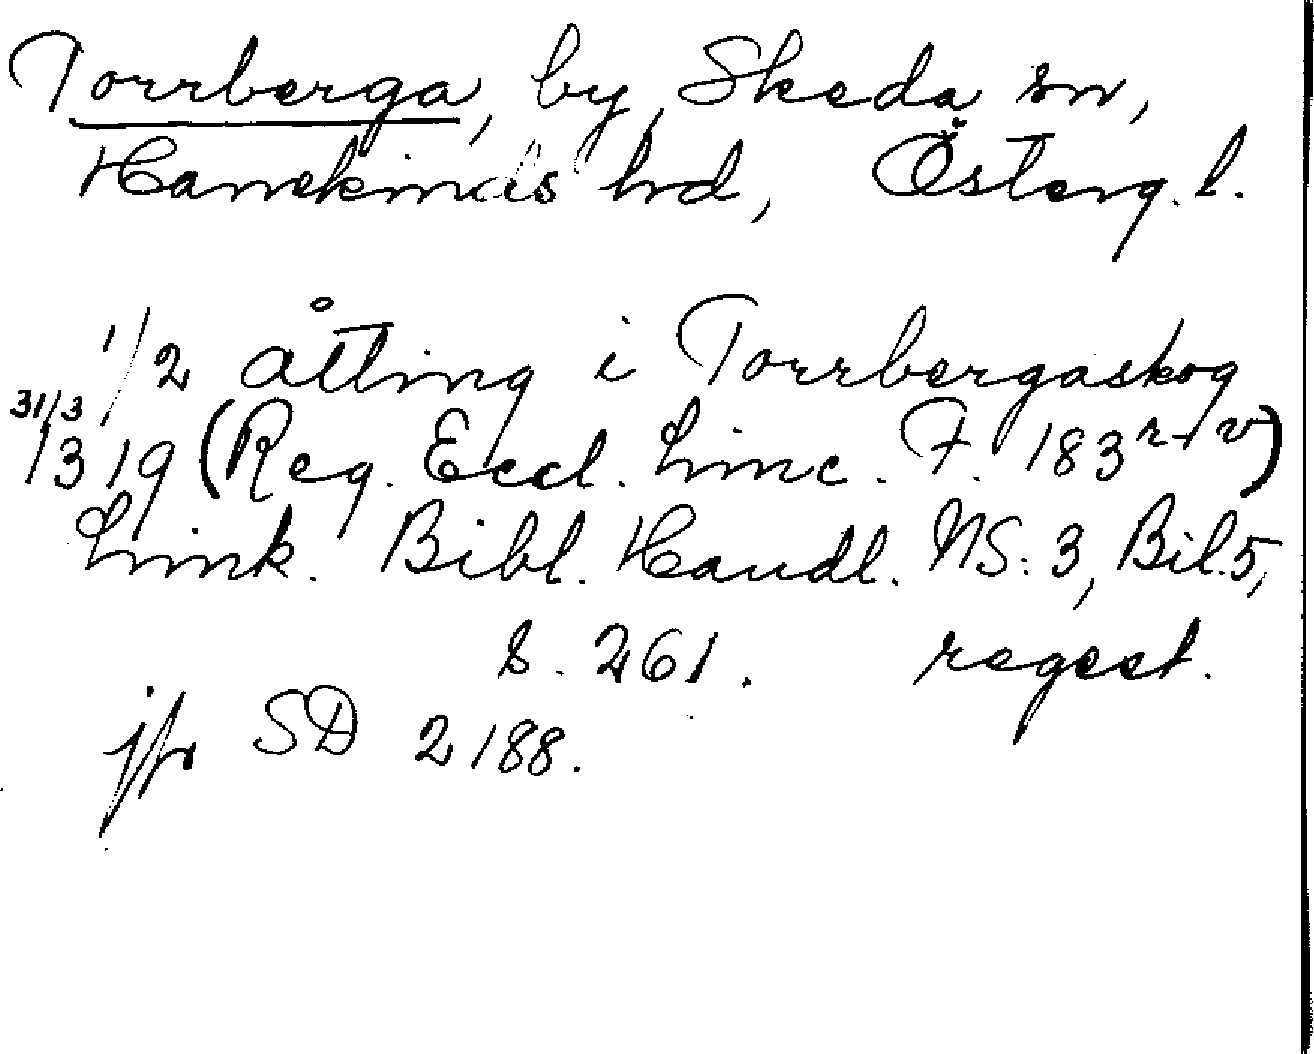 Torrberga, by, Skeda sn,
Hanekinds hd, Österg. l.
1/2 åtting i Torrbergaskog
31/3
1319 (Reg. Eccl. Linc. F. 183 r-v)
Link. Bibl. Handl. NS: 3, Bil. 5,
s. 261. regest.
jfr SD 2188.